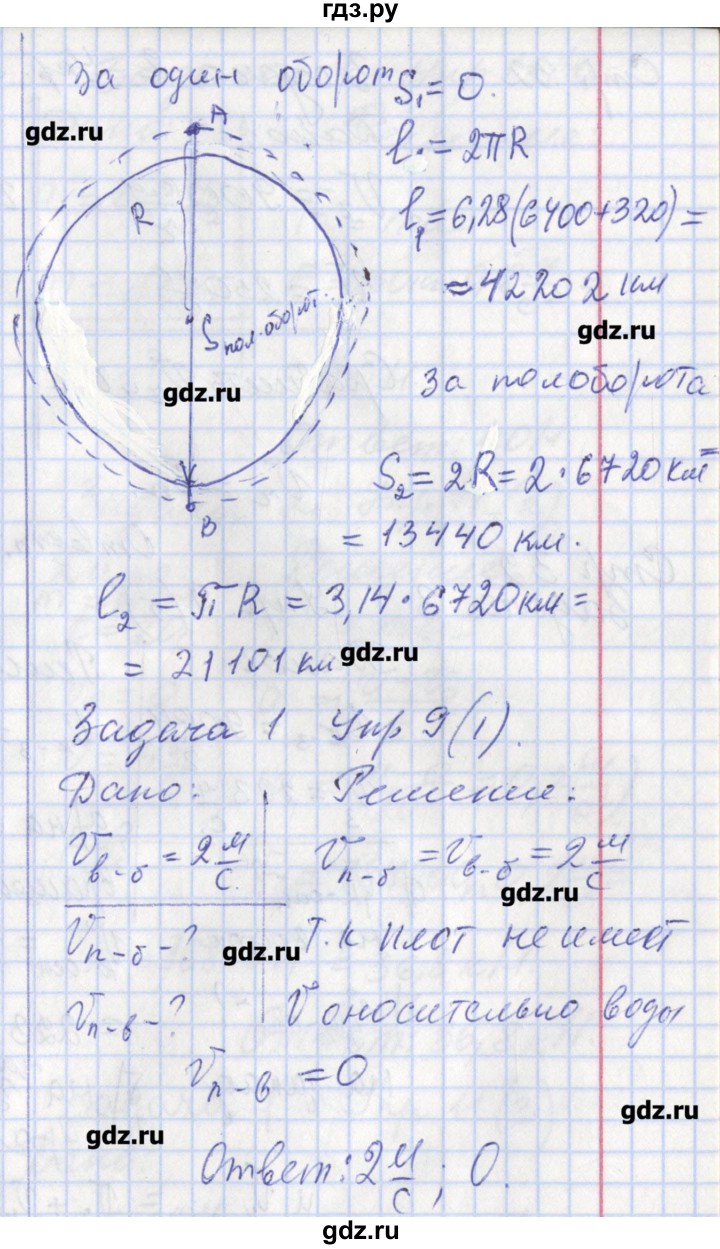 гдз.ру
За один оборот S₁ = 0.
gdz.ru
A
l = 2πR
R
l₁ = 6,28(6400+320) =
= 42202 км
S пол. оборот.
gdz.ru
gdz.ru
За полоборота
S₂ = 2R = 2·6720 км =
B
= 13440 км.
l₂ = πR = 3,14·6720 км =
= 21101 км
gdz.ru
Задача 1 Упр 9(1).
Дано: Решение:
Vв-б = 2 м/с Vп-б = Vв-б = 2 м/с
gdz.ru
Vп-б - ? Т.к плот не имеет
gdz.ru
Vп-в - ? V оносительно воды
Vп-в = 0
gdz.ru
gdz.ru
Ответ: 2 м/с ; 0.
gdz.ru